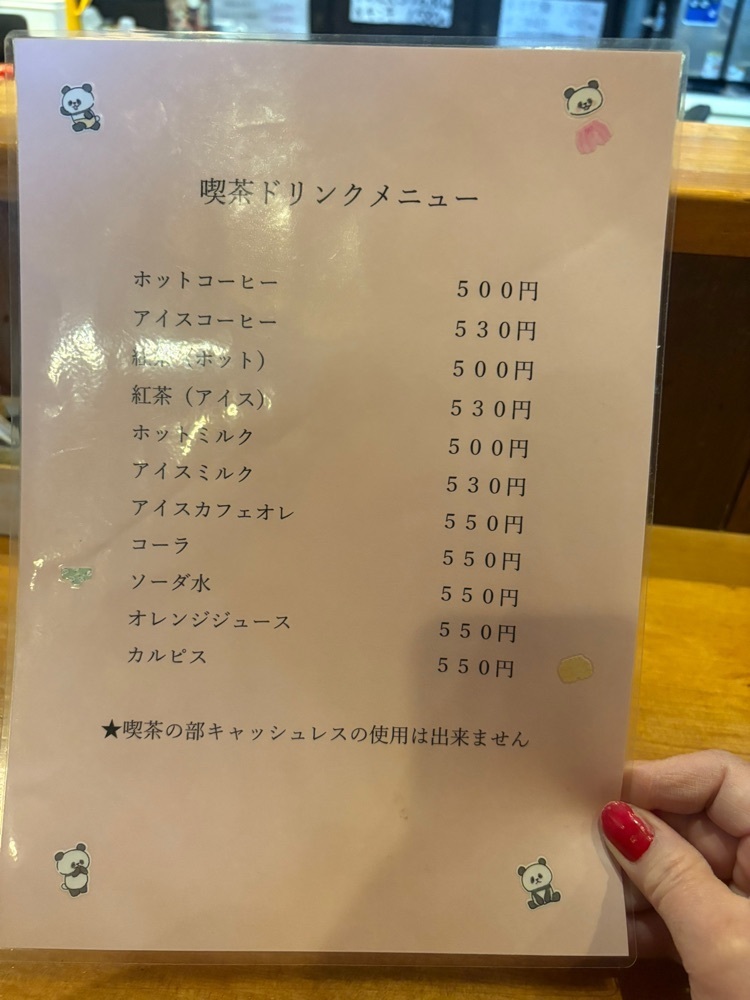 喫茶ドリンクメニュー
ホットコーヒー ５００円
アイスコーヒー ５３０円
紅茶（ホット） ５００円
紅茶（アイス） ５３０円
ホットミルク ５００円
アイスミルク ５３０円
アイスカフェオレ ５５０円
コーラ ５５０円
ソーダ水 ５５０円
オレンジジュース ５５０円
カルピス ５５０円
★喫茶の部キャッシュレスの使用は出来ません